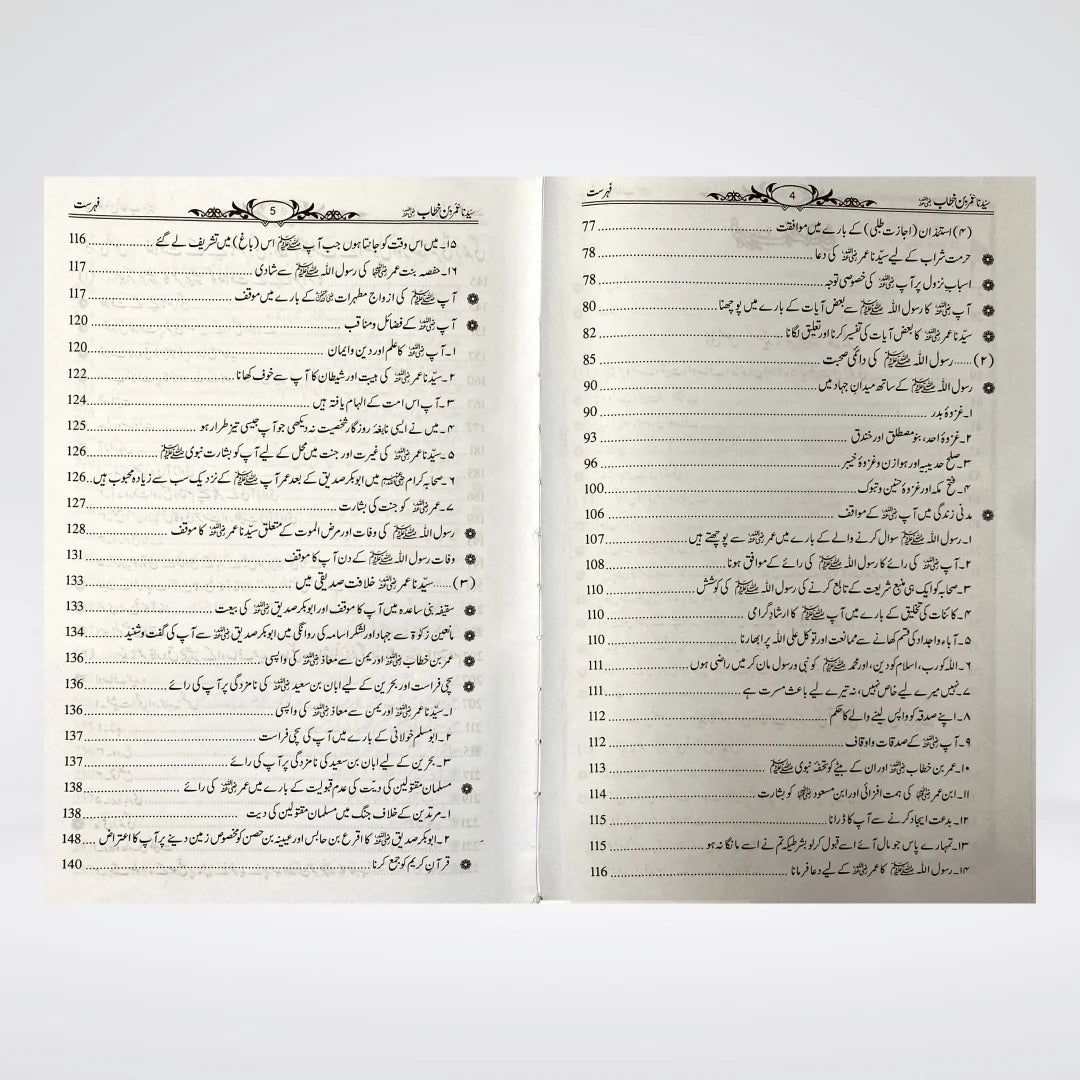 سیّدنا عمر بن خطاب رضی اللہ عنہ 4 فہرست
(۴) استئذان (اجازت طلبی) کے بارے میں موافقت 77
حرمت شراب کے لیے سیّدنا عمر رضی اللہ عنہ کی دعا 78
اسباب نزول پر آپ رضی اللہ عنہ کی خصوصی توجہ 78
آپ رضی اللہ عنہ کا رسول اللہ ﷺ سے بعض آیات کے بارے میں پوچھنا 80
سیّدنا عمر رضی اللہ عنہ کا بعض آیات کی تفسیر کرنا اور تعلیق لگانا 82
(۲)..... رسول اللہ ﷺ کی دائمی صحبت 85
رسول اللہ ﷺ کے ساتھ میدانِ جہاد میں 90
۱۔ غزوۂ بدر 90
۲۔ غزوۂ احد، بنو مصطلق اور خندق 93
۳۔ صلح حدیبیہ اور ہوازن و غزوۂ خیبر 96
۴۔ فتح مکہ اور غزوۂ حنین و تبوک 100
مدنی زندگی میں آپ رضی اللہ عنہ کے مواقف 106
۱۔ رسول اللہ ﷺ سوال کرنے والے کے بارے میں عمر رضی اللہ عنہ سے پوچھتے ہیں 107
۲۔ آپ رضی اللہ عنہ کی رائے کا رسول اللہ ﷺ کی رائے کے موافق ہونا 108
۳۔ صحابہ کو ایک ہی منبع شریعت کے تابع کرنے کی رسول اللہ ﷺ کی کوشش 110
۴۔ کائنات کی تخلیق کے بارے میں آپ ﷺ کا ارشادِ گرامی 110
۵۔ آباء و اجداد کی قسم کھانے سے ممانعت اور توکل علی اللہ پر ابھارنا 110
۶۔ اللہ کو رب، اسلام کو دین، اور محمد ﷺ کو نبی و رسول مان کر میں راضی ہوں 111
۷۔ نہیں میرے لیے خاص نہیں، نہ تیرے لیے باعث مسرت ہے 111
۸۔ اپنے صدقہ کو واپس لینے والے کا حکم 112
۹۔ آپ رضی اللہ عنہ کے صدقات و اوقاف 112
۱۰۔ عمر بن خطاب رضی اللہ عنہ اور ان کے بیٹے کو تحفۂ نبوی ﷺ 113
۱۱۔ ابن عمر رضی اللہ عنہما کی ہمت افزائی اور ابن مسعود رضی اللہ عنہ کو بشارت 114
۱۲۔ بدعت ایجاد کرنے سے آپ کا ڈرانا 115
۱۳۔ تمہارے پاس جو مال آئے اسے قبول کر لو بشرطیکہ تم نے اسے مانگا نہ ہو 115
۱۴۔ رسول اللہ ﷺ کا عمر رضی اللہ عنہ کے لیے دعا فرمانا 116
سیّدنا عمر بن خطاب رضی اللہ عنہ 5 فہرست
۱۵۔ میں اس وقت کو جانتا ہوں جب آپ ﷺ اس (باغ) میں تشریف لے گئے 116
۱۶۔ حفصہ بنت عمر رضی اللہ عنہا کی رسول اللہ ﷺ سے شادی 117
آپ ﷺ کی ازواج مطہرات رضی اللہ عنہن کے بارے میں موقف 117
آپ رضی اللہ عنہ کے فضائل و مناقب 120
۱۔ آپ رضی اللہ عنہ کا علم اور دین و ایمان 120
۲۔ سیّدنا عمر رضی اللہ عنہ کی ہیبت اور شیطان کا آپ سے خوف کھانا 122
۳۔ آپ اس امت کے الہام یافتہ ہیں 124
۴۔ میں نے ایسی نابغۂ روزگار شخصیت نہ دیکھی جو آپ جیسی تیز طرار ہو 125
۵۔ سیّدنا عمر رضی اللہ عنہ کی غیرت اور جنت میں محل کے لیے آپ کو بشارت نبوی ﷺ 126
۶۔ صحابہ کرام رضی اللہ عنہم میں ابوبکر صدیق کے بعد عمر آپ ﷺ کے نزدیک سب سے زیادہ محبوب ہیں 126
۷۔ عمر رضی اللہ عنہ کو جنت کی بشارت 127
رسول اللہ ﷺ کی وفات اور مرض الموت کے متعلق سیّدنا عمر رضی اللہ عنہ کا موقف 128
وفات رسول اللہ ﷺ کے دن آپ کا موقف 131
(۳)..... سیّدنا عمر رضی اللہ عنہ خلافت صدیقی میں 133
سقیفہ بنی ساعدہ میں آپ کا موقف اور ابوبکر صدیق رضی اللہ عنہ کی بیعت 133
مانعین زکوٰۃ سے جہاد اور لشکر اسامہ کی روانگی میں ابوبکر صدیق رضی اللہ عنہ سے آپ کی گفت و شنید 134
عمر بن خطاب رضی اللہ عنہ اور یمن سے معاذ رضی اللہ عنہ کی واپسی 136
سچی فراست اور بحرین کے لیے ابان بن سعید رضی اللہ عنہ کی نامزدگی پر آپ کی رائے 136
۱۔ سیّدنا عمر رضی اللہ عنہ اور یمن سے معاذ رضی اللہ عنہ کی واپسی 136
۲۔ ابو مسلم خولانی کے بارے میں آپ کی سچی فراست 137
۳۔ بحرین کے لیے ابان بن سعید کی نامزدگی پر آپ کی رائے 137
مسلمان مقتولین کی دیت کی عدم قبولیت کے بارے میں عمر رضی اللہ عنہ کی رائے 138
۱۔ مرتدین کے خلاف جنگ میں مسلمان مقتولین کی دیت 138
۲۔ ابوبکر صدیق رضی اللہ عنہ کا اقرع بن حابس اور عیینہ بن حصن کو مخصوص زمین دینے پر آپ کا اعتراض 148
قرآن کریم کو جمع کرنا 140